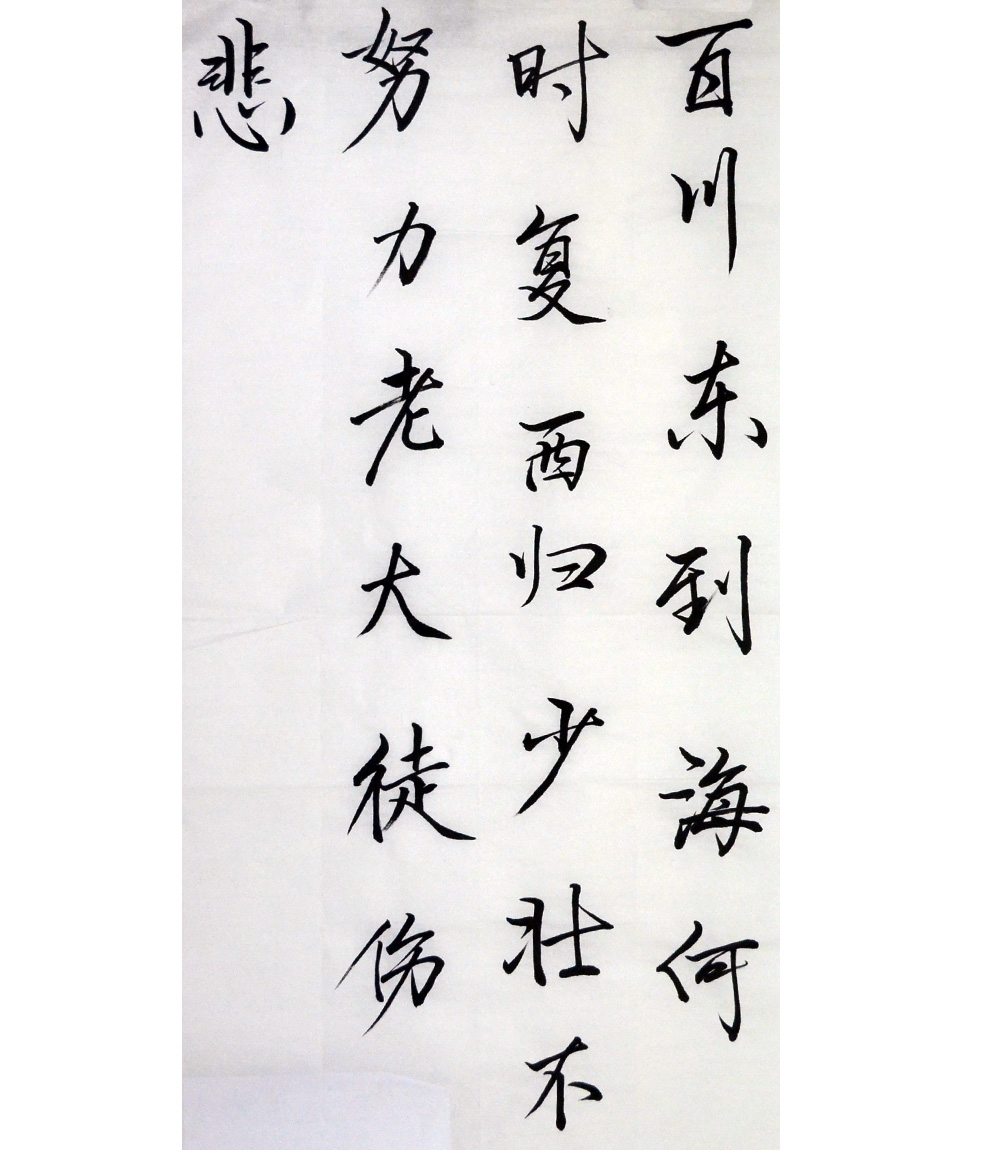 百川东到海何
时复西归少壮不
努力老大徒伤
悲